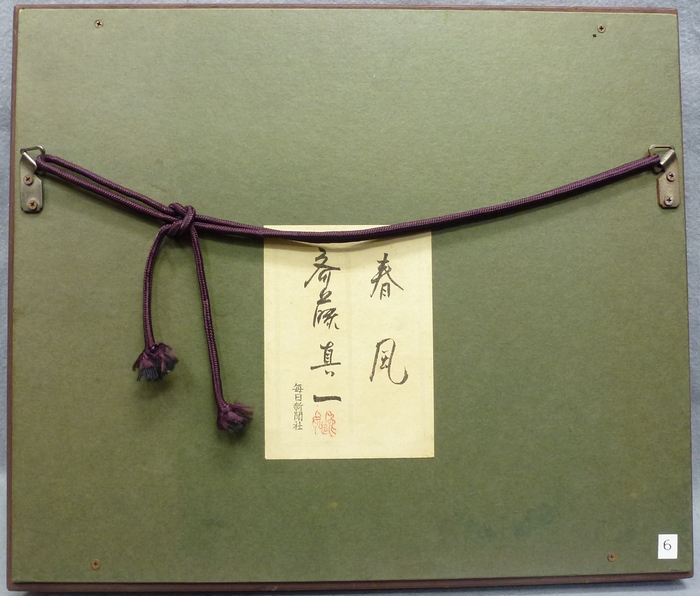 春風
斎藤真一
毎日新聞社
6